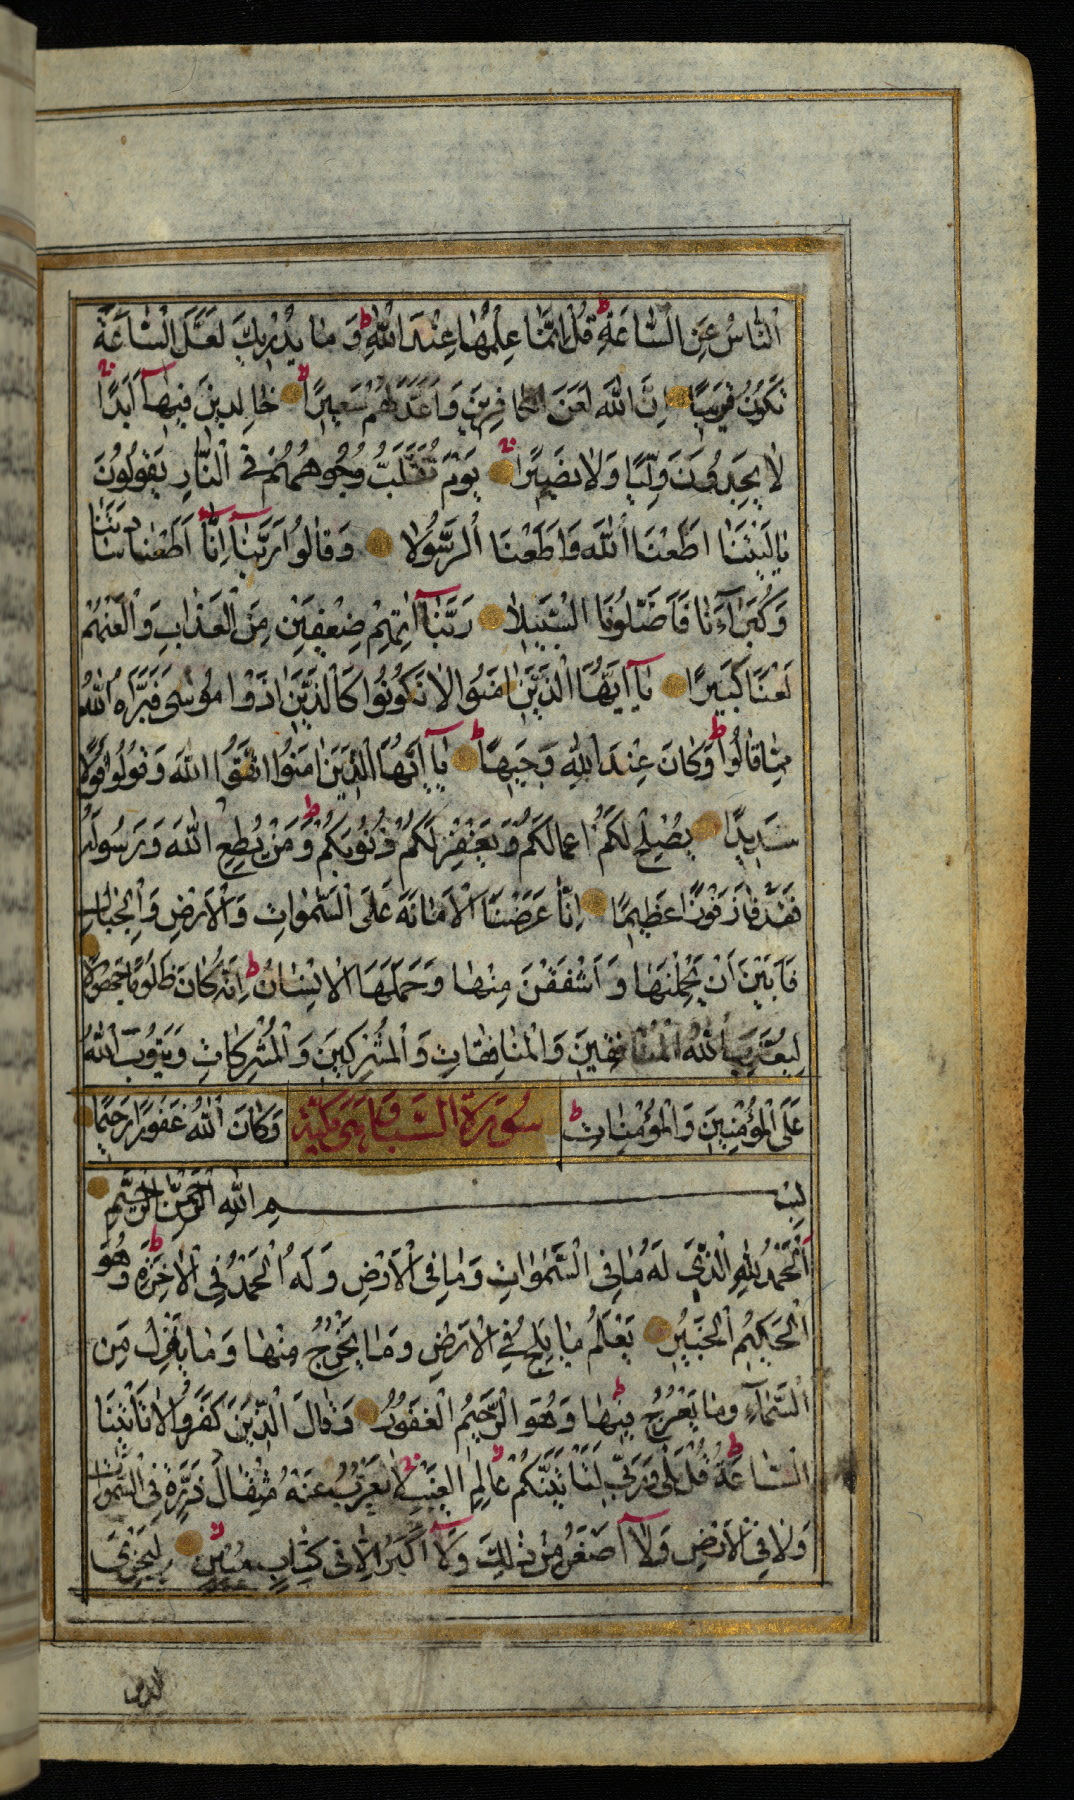 النَّاسُ عَنِ السَّاعَةِ ط قُلْ اِنَّمَا عِلْمُهَا عِنْدَ اللّٰهِ ط وَمَا يُدْرِيكَ لَعَلَّ السَّاعَةَ
تَكُونُ قَرِيبًا اِنَّ اللّٰهَ لَعَنَ الْكَافِرِينَ وَاَعَدَّ لَهُمْ سَعِيرًا خَالِدِينَ فِيهَآ اَبَدًا
لَا يَجِدُونَ وَلِيًّا وَلَا نَصِيرًا يَوْمَ تُقَلَّبُ وُجُوهُهُمْ فِى النَّارِ يَقُولُونَ
يَا لَيْتَنَا اَطَعْنَا اللّٰهَ وَاَطَعْنَا الرَّسُولَا وَقَالُوا رَبَّنَآ اِنَّآ اَطَعْنَا سَادَتَنَا
وَكُبَرَآءَنَا فَاَضَلُّونَا السَّبِيلَا رَبَّنَآ اٰتِهِمْ ضِعْفَيْنِ مِنَ الْعَذَابِ وَالْعَنْهُمْ
لَعْنًا كَبِيرًا يَآ اَيُّهَا الَّذِينَ اٰمَنُوا لَا تَكُونُوا كَالَّذِينَ اٰذَوْا مُوسٰى فَبَرَّاَهُ اللّٰهُ
مِمَّا قَالُوا ط وَكَانَ عِنْدَ اللّٰهِ وَجِيهًا ط يَآ اَيُّهَا الَّذِينَ اٰمَنُوا اتَّقُوا اللّٰهَ وَقُولُوا قَوْلًا
سَدِيدًا يُصْلِحْ لَكُمْ اَعْمَالَكُمْ وَيَغْفِرْ لَكُمْ ذُنُوبَكُمْ ط وَمَنْ يُطِعِ اللّٰهَ وَرَسُولَهُ
فَقَدْ فَازَ فَوْزًا عَظِيمًا اِنَّا عَرَضْنَا الْاَمَانَةَ عَلَى السَّمٰوَاتِ وَالْاَرْضِ وَالْجِبَالِ
فَاَبَيْنَ اَنْ يَحْمِلْنَهَا وَاَشْفَقْنَ مِنْهَا وَحَمَلَهَا الْاِنْسَانُ ط اِنَّهُ كَانَ ظَلُومًا جَهُولًا
لِيُعَذِّبَ اللّٰهُ الْمُنَافِقِينَ وَالْمُنَافِقَاتِ وَالْمُشْرِكِينَ وَالْمُشْرِكَاتِ وَيَتُوبَ اللّٰهُ
عَلَى الْمُؤْمِنِينَ وَالْمُؤْمِنَاتِ ط سُورَةُ السَّبَا وَهِىَ مَكِّيَّةٌ وَكَانَ اللّٰهُ غَفُورًا رَحِيمًا
بِسْمِ اللّٰهِ الرَّحْمٰنِ الرَّحِيمِ
اَلْحَمْدُ لِلّٰهِ الَّذِى لَهُ مَا فِى السَّمٰوَاتِ وَمَا فِى الْاَرْضِ وَلَهُ الْحَمْدُ فِى الْاٰخِرَةِ ط وَهُوَ
الْحَكِيمُ الْخَبِيرُ يَعْلَمُ مَا يَلِجُ فِى الْاَرْضِ وَمَا يَخْرُجُ مِنْهَا وَمَا يَنْزِلُ مِنَ
السَّمَآءِ وَمَا يَعْرُجُ فِيهَا ط وَهُوَ الرَّحِيمُ الْغَفُورُ وَقَالَ الَّذِينَ كَفَرُوا لَا تَاْتِينَا
السَّاعَةُ ط قُلْ بَلٰى وَرَبِّى لَتَاْتِيَنَّكُمْ عَالِمِ الْغَيْبِ لَا يَعْزُبُ عَنْهُ مِثْقَالُ ذَرَّةٍ فِى السَّمٰوَاتِ
وَلَا فِى الْاَرْضِ وَلَآ اَصْغَرُ مِنْ ذٰلِكَ وَلَآ اَكْبَرُ اِلَّا فِى كِتَابٍ مُبِينٍ لِيَجْزِىَ